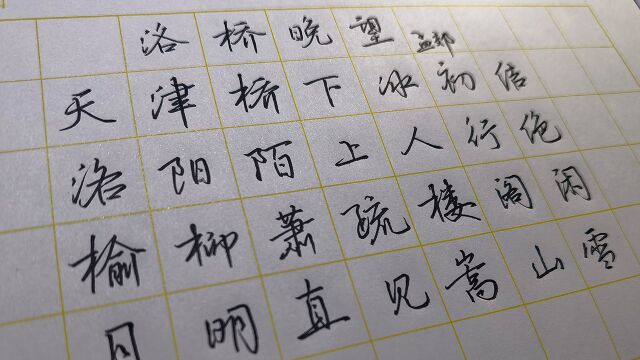 洛桥晚望 孟郊
天津桥下冰初结
洛阳陌上人行绝
榆柳萧疏楼阁闲
月明直见嵩山雪